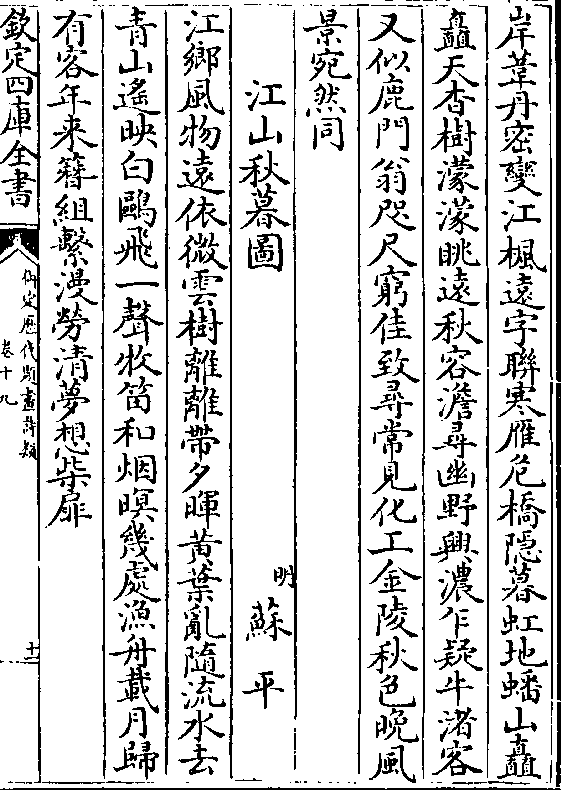 岸葦丹密變江楓遠字聯寒雁危橋隠暮虹地蟠山矗
矗天杳樹濛濛眺遠秋容澹尋幽野興濃乍疑牛渚客
又似鹿門翁咫尺窮佳致尋常見化工金陵秋色晚風
景宛然同
江山秋暮圖
明蘇平
江鄉風物遠依微雲樹離離帶夕暉黃葉亂隨流水去
青山遙映白鷗飛一聲牧笛和烟暝幾處漁舟載月歸
有客年来簪組繫漫勞清夢想柴扉
欽定四庫全書
御定歴代題畫詩類
卷十九
十二